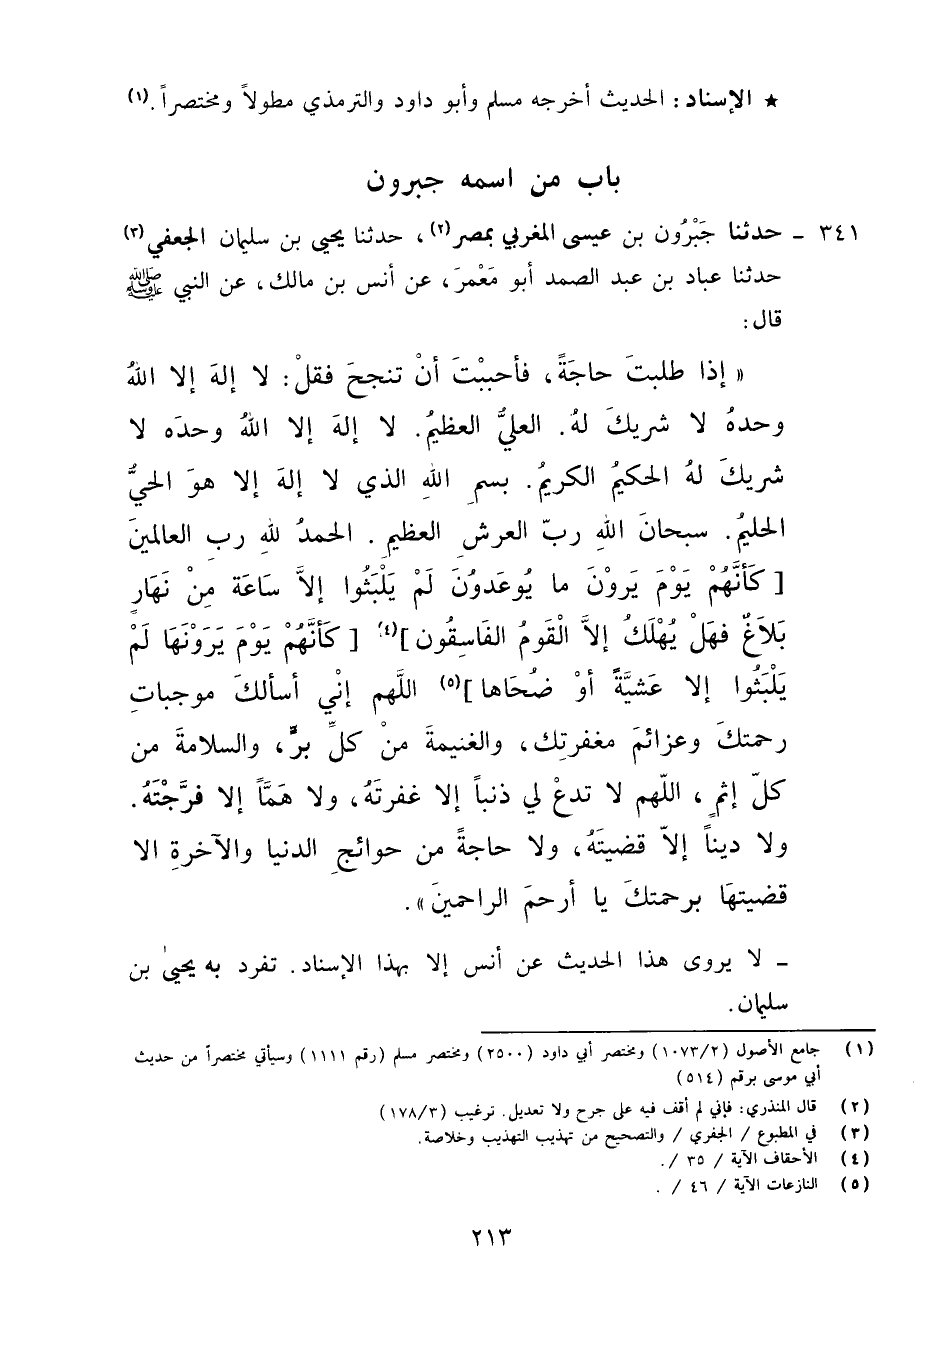 ★ الإسناد: الحديث أخرجه مسلم وأبو داود والترمذي مطولاً ومختصراً.(١)
باب من اسمه جبرون
٣٤١ ـ حدثنا جَبْرُون بن عيسى المغربي بمصر(٢)، حدثنا يحيى بن سليمان الجعفي(٣)
حدثنا عباد بن عبد الصمد أبو مَعْمرَ، عن أنس بن مالك، عن النبي ﷺ
قال:
« إذا طلبتَ حاجَةً، فأحببْتَ أنْ تنجحَ فقلْ: لا إلهَ إلا اللهُ
وحدهُ لا شريكَ لهُ. العليُّ العظيمُ. لا إلهَ إلا اللهُ وحدَه لا
شريكَ لهُ الحكيمُ الكريمُ. بسمِ اللهِ الذي لا إلهَ إلا هوَ الحيُّ
الحليمُ. سبحانَ اللهِ ربّ العرشِ العظيمِ. الحمدُ للهِ ربِ العالمينَ
[كَأنَّهُمْ يَوْمَ يَروْنَ ما يُوعَدوُنَ لَمْ يَلْبَثُوا إلاَّ سَاعَة مِنْ نَهَارٍ
بَلاَغٌ فهَلْ يُهْلَكُ إلاَّ الْقَومُ الفَاسِقُون](٤) [كَأنَّهُمْ يَوْمَ يَرَوْنَهَا لَمْ
يَلْبَثُوا إلا عَشيَّةً أوْ ضُحَاها](٥) اللَّهم إنْي أسألكَ موجباتِ
رحمتكَ وعزائمَ مغفرتِك، والغنيمةَ منْ كلِّ برٍّ، والسلامةَ من
كلّ إثمٍ، اللّهم لا تدعْ لي ذنباً إلا غفرتَهُ، ولا همَّاً إلا فرَّجْتَهُ.
ولا ديناً إلاّ قضيتَهُ، ولا حاجةً من حوائجِ الدنيا والآخرةِ الا
قضيتهَا برحمتكَ يا أرحمَ الراحمينَ».
ـ لا يروى هذا الحديث عن أنس إلا بهذا الإسناد. تفرد به يحيىٰ بن
سليمان.
(١) جامع الأصول (١٠٧٣/٢) ومختصر أبي داود (٢٥٠٠) ومختصر مسلم (رقم ١١١١) وسيأتي مختصراً من حديث
أبي موسى برقم (٥١٤)
(٢) قال المنذري: فإني لم أقف فيه على جرح ولا تعديل. ترغيب (١٧٨/٣)
(٣) في المطبوع / الجفري / والتصحيح من تهذيب التهذيب وخلاصة.
(٤) الأحقاف الآية / ٣٥ /.
(٥) النازعات الآية / ٤٦ / .
٢١٣